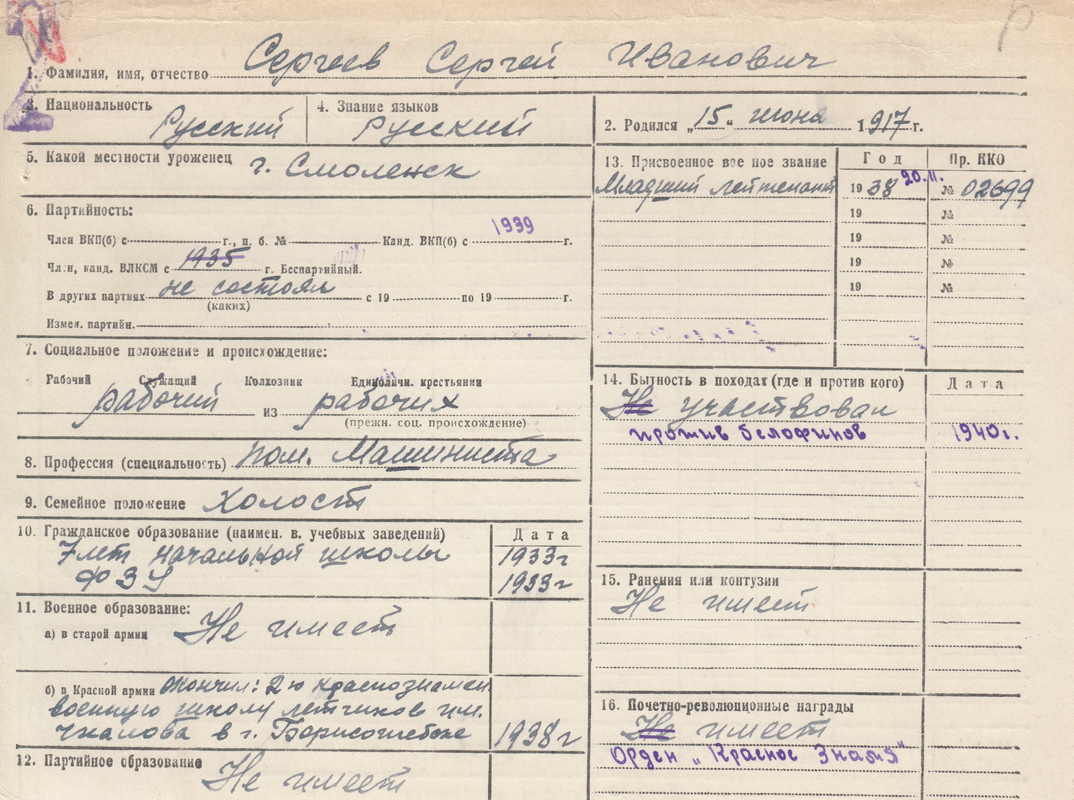 1. Фамилия, имя, отчество Сергеев Сергей Иванович
3. Национальность Русский
4. Знание языков русский
2. Родился „15“ июня 1917 г.
5. Какой местности уроженец г. Смоленск
6. Партийность: 1939
Член ВКП(б) с г., п. б. № Канд. ВКП(б) с г.
Член, канд. ВЛКСМ с 1935 г. Беспартийный.
В других партиях не состоял с 19 по 19 г.
(каких)
Измен. партийн.
7. Социальное положение и происхождение:
Рабочий Служащий Колхозник Единоличн. крестьянин
рабочий из рабочих
(прежн. соц. происхождение)
8. Профессия (специальность) пом. Машиниста
9. Семейное положение Холост
10. Гражданское образование (наимен. в. учебных заведений) Дата
7 лет начальной школы 1933г
ФЗУ 1933г
11. Военное образование:
а) в старой армии Не имеет
б) в Красной армии окончил: 2-ю краснознамен.
военную школу летчиков им.
Чкалова в г. Борисоглебске 1938г
12. Партийное образование Не имеет
13. Присвоенное вое ное звание Год Пр. НКО
Младший лейтенант 1938 20.11. № 02699
19 №
19 №
19 №
19 №
14. Бытность в походах (где и против кого) Дата
Не участвовал
против белофинов 1940г.
15. Ранения или контузии
Не имеет
16. Почетно-революционные награды
Не имеет
Орден „Красное Знамя"